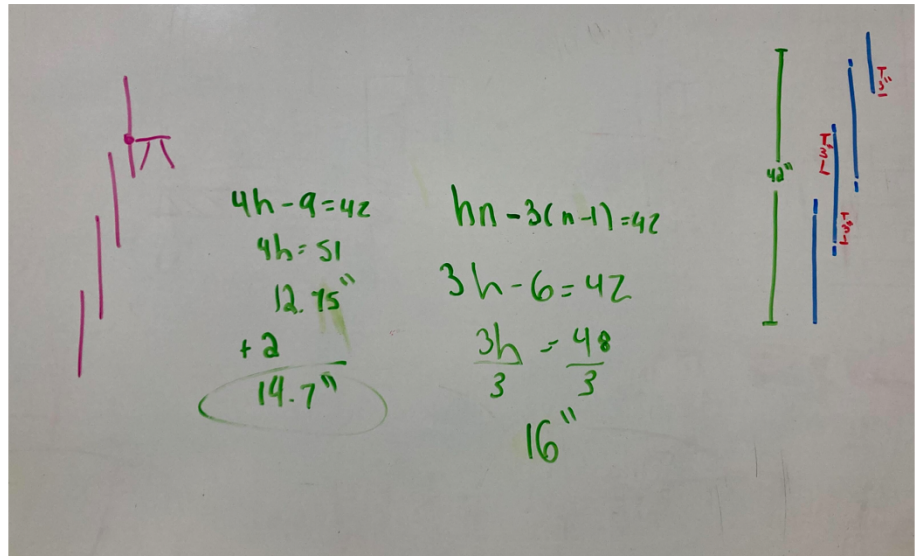 4h-9=42
4h=51
12.75"
+2
14.7"
hn-3(n-1)=42
3h-6=42
3h = 48
3 3
16"
42"
3"
3"
3"